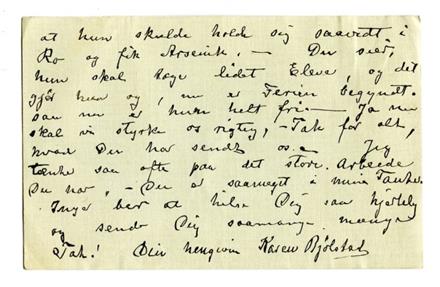 at hun skulde holde sig saavidt i
Ro og fik Arsenik. — Du sier,
hun skal tage lidet Eleve, og det
gjör hun og, nu er Ferien begyndt.
saa nu er hun helt fri — Ja nu
skal vi styrke os rigtig, — Tak for alt,
hvad Du har sendt os. — Jeg
tænke saa ofte paa det store Arbeide
Du har, — Du er saameget i mine Tanker.
Inga ber at hilse Dig saa hjertelig
og sende Dig saamange mange
Tak! Din hengivne Karen Bjölstad